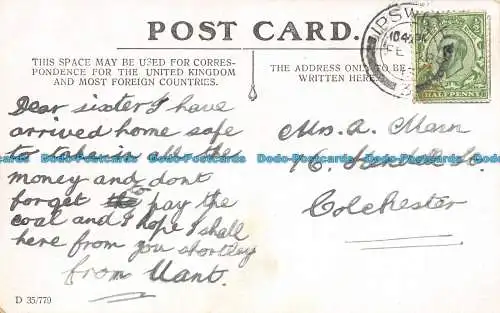 POST CARD.
THIS SPACE MAY BE USED FOR CORRES-
PONDENCE FOR THE UNITED KINGDOM
AND MOST FOREIGN COUNTRIES.
THE ADDRESS ONLY TO BE
WRITTEN HERE.
IPSW
FE
HALFPENNY
Dear sister I have
arrived home safe
to take in all the
money and dont
forget to pay the
coal and I hope I shall
here from you shortley
from
Mrs. A. Mann
St.
Colchester
D 35/779
Dodo-Postcards Dodo-Postcards Dodo-Postcards Dodo-Postcards